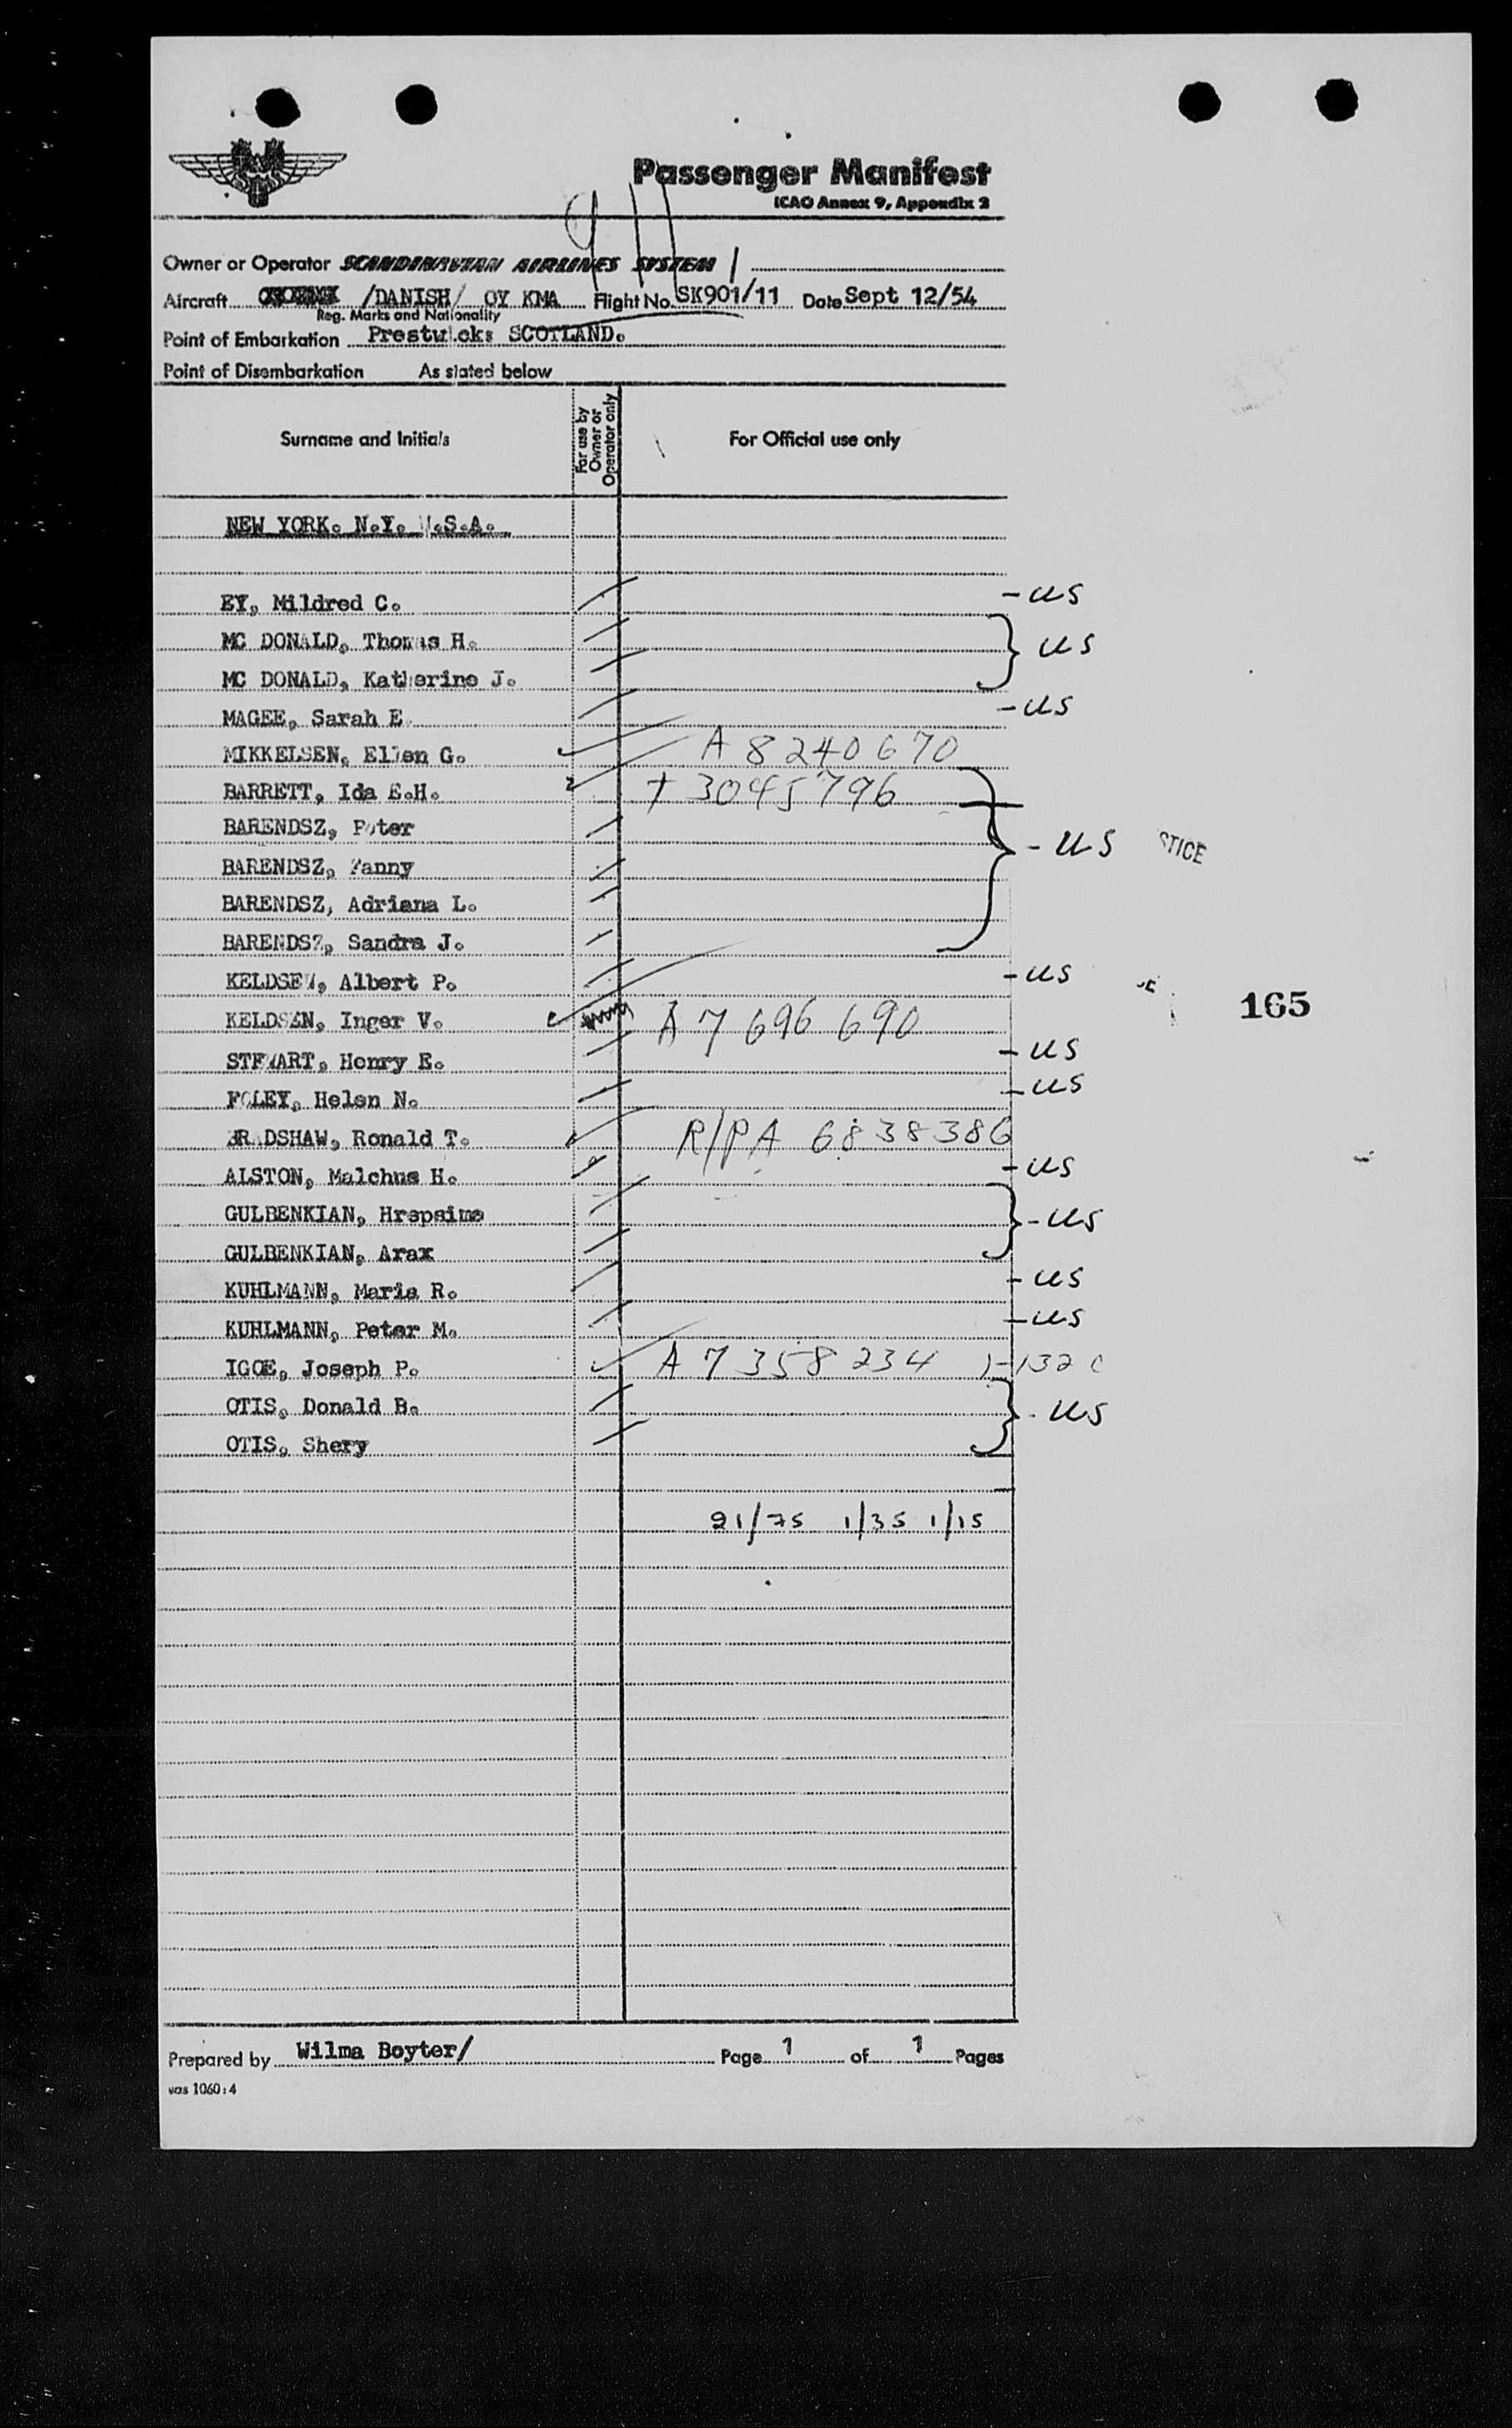 Passenger Manifest
ICAO Annex 9, Appendix 2
Owner or Operator SCANDINAVIAN AIRLINES SYSTEM
Aircraft /DANISH/ OY KMA Flight No. SK901/11 Date Sept 12/54
Reg. Marks and Nationality
Point of Embarkation Prestwick: SCOTLAND.
Point of Disembarkation As stated below
Surname and Initials For use by Owner or Operator only For Official use only
NEW YORK. N.Y. U.S.A.
EY, Mildred C. - US
MC DONALD, Thomas H. US
MC DONALD, Katherine J.
MAGEE, Sarah E. - US
MIKKELSEN, Ellen G. A 8240670
BARRETT, Ida E.H. + 3045796
BARENDSZ, Peter - US
BARENDSZ, Fanny
BARENDSZ, Adriana L.
BARENDSZ, Sandra J.
KELDSEN, Albert P. - US
KELDSEN, Inger V. A 7 696 690
165
STEWART, Henry E. - US
FOLEY, Helen N. - US
BRADSHAW, Ronald T. R/P A 6838386
ALSTON, Malchus H. - US
GULBENKIAN, Hrepsime - US
GULBENKIAN, Arax
KUHLMANN, Maria R. - US
KUHLMANN, Peter M. - US
IGOE, Joseph P. A 7358234 1-132 C
OTIS, Donald B. - US
OTIS, Shery
21/75 1/35 1/15
Prepared by Wilma Boyter/ Page 1 of 1 Pages
vas 1060:4